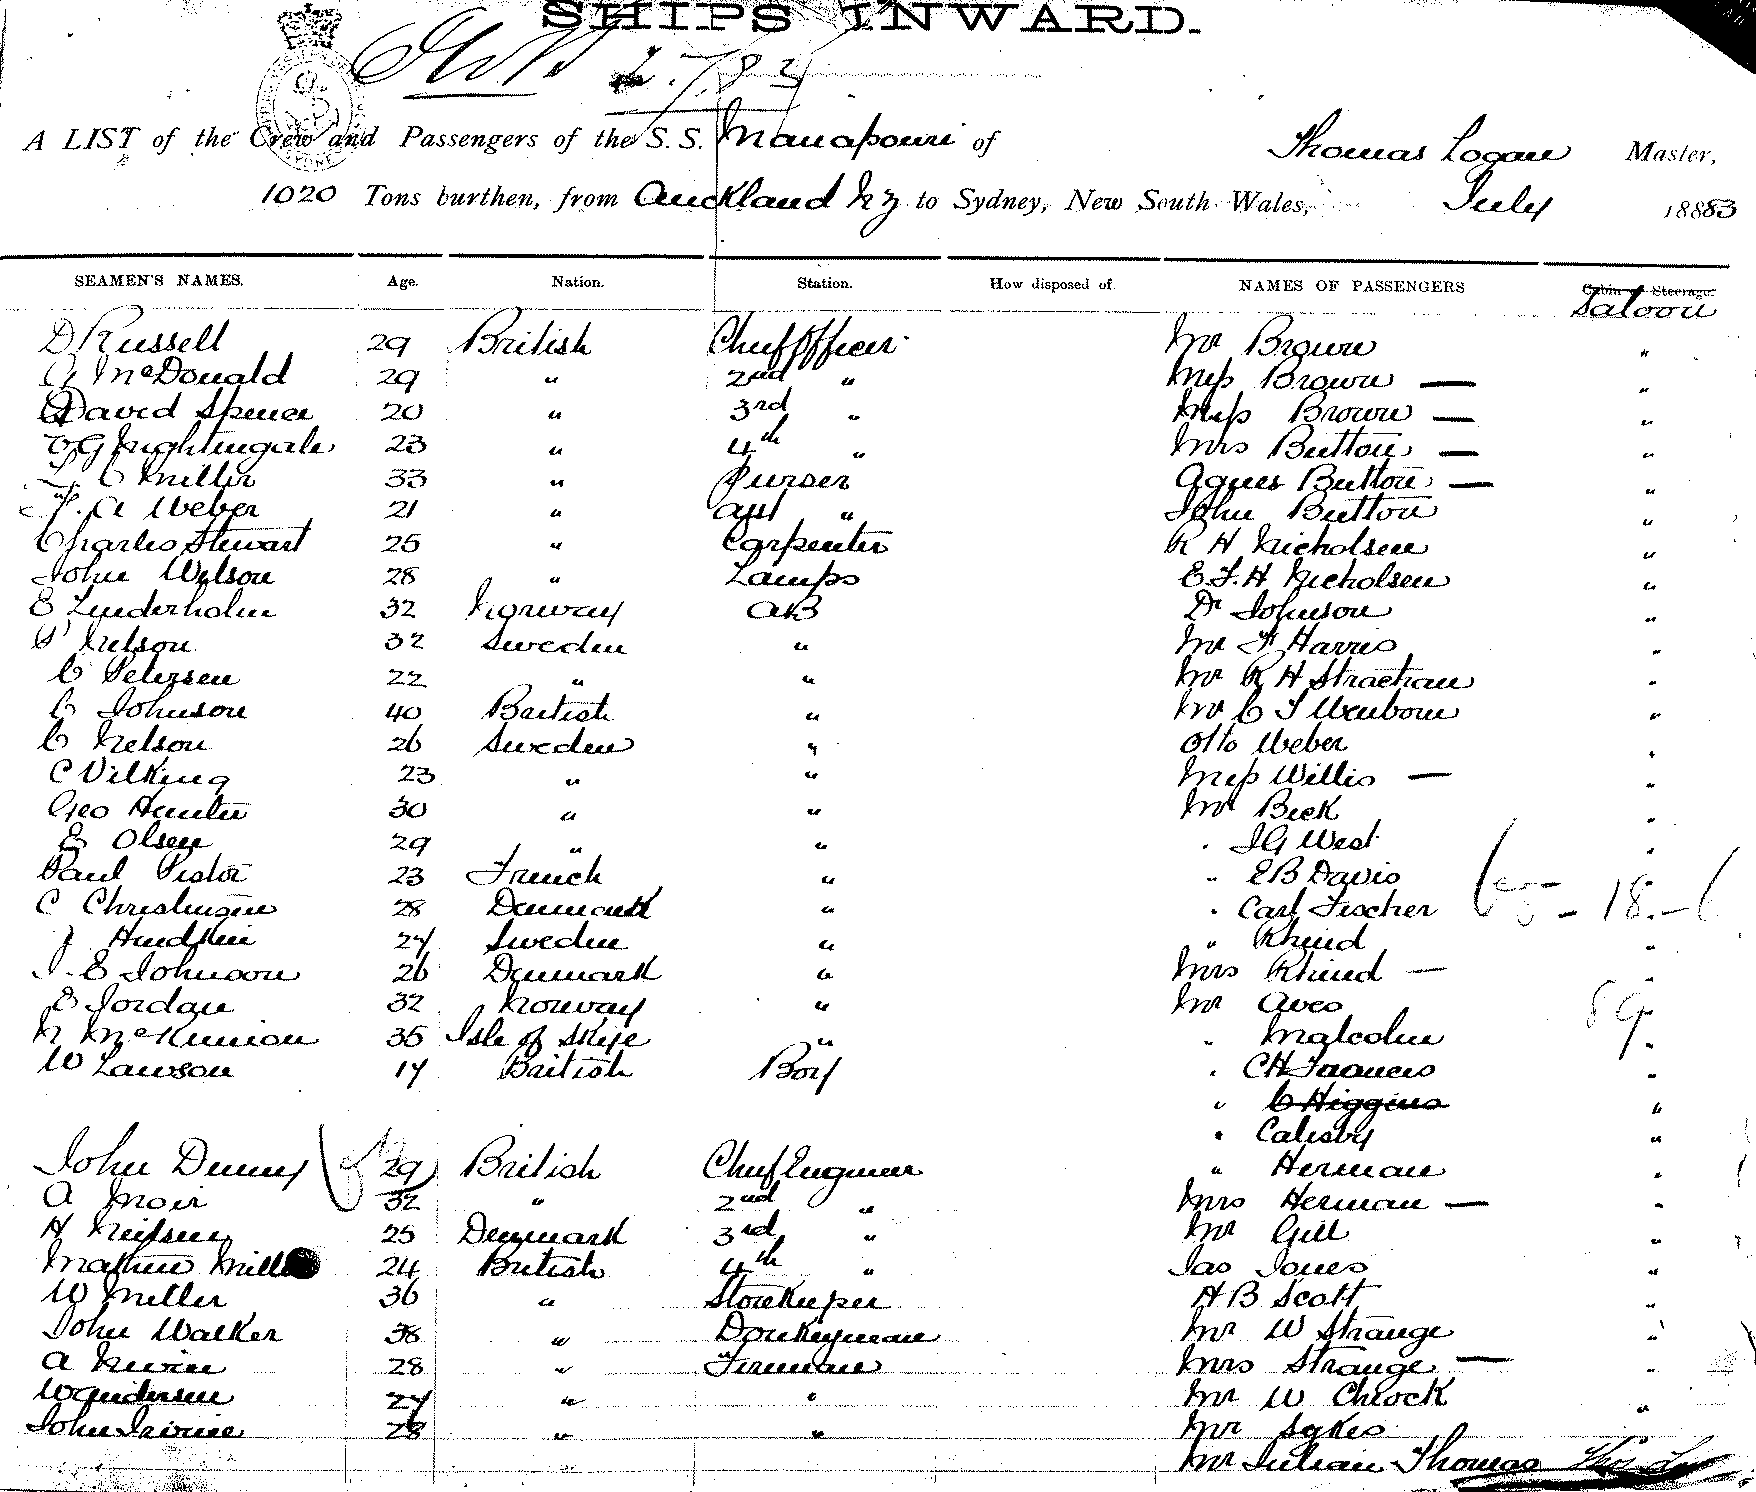 SHIPS INWARD.
A LIST of the Crew and Passengers of the S.S. Manapouri of Thomas Logan Master,
1020 Tons burthen, from Auckland NZ to Sydney, New South Wales, July 1883
SEAMEN'S NAMES. Age. Nation. Station. How disposed of. NAMES OF PASSENGERS Cabin or Steerage.
Saloon
D Russell 29 British Chief Officer Mr Brown "
A McDonald 29 " 2nd " Miss Brown — "
David Spence 20 " 3rd " Miss Brown — "
Nightingale 23 " 4th " Mrs Button — "
C Miller 33 " Purser Agnes Button — "
A Weber 21 " " John Button "
Charles Stewart 25 " Carpenter R H Nicholsen "
John Wilson 28 " Lamps E.F.H. Nicholsen "
E Linderholm 32 Norway AB Dr Johnson "
Nelson 32 Sweden " Mr F Harris "
C Petersen 22 " " Mr R H Strachan "
C Johnson 40 British " Mr C F "
C Nelson 26 Sweden " Otto Weber "
C Vilking 23 " " Miss Willis — "
Geo Hunter 30 " " Mr Beck "
E Olsen 29 " " " J G West "
Paul 23 French " " E B Davis
C 28 Denmark " " Carl Fischer
24 Sweden " " Rhind "
J. E Johnson 26 Denmark " Mrs Rhind — "
E Jordan 32 Norway " Mr Aves
N McKinnon 35 Isle of Skye " " Malcolm "
W Lawson 17 British Boy " C H Francis "
" C Higgins "
" "
John Denny 29 British Chief Engineer " Herman "
A Moir 32 " 2nd " Mrs Herman — "
H Neilsen 25 Denmark 3rd " Mr Gill "
Mathew Miller 24 British 4th " Jas Jones "
W Miller 36 " Storekeeper H B Scott "
John Walker 38 " Donkeyman Mr W Strange "
A 28 " Fireman Mrs Strange — "
W Andersen 27 " " Mr W "
John Irvine 28 " " Mr Sykes
Mr Julian Thomas